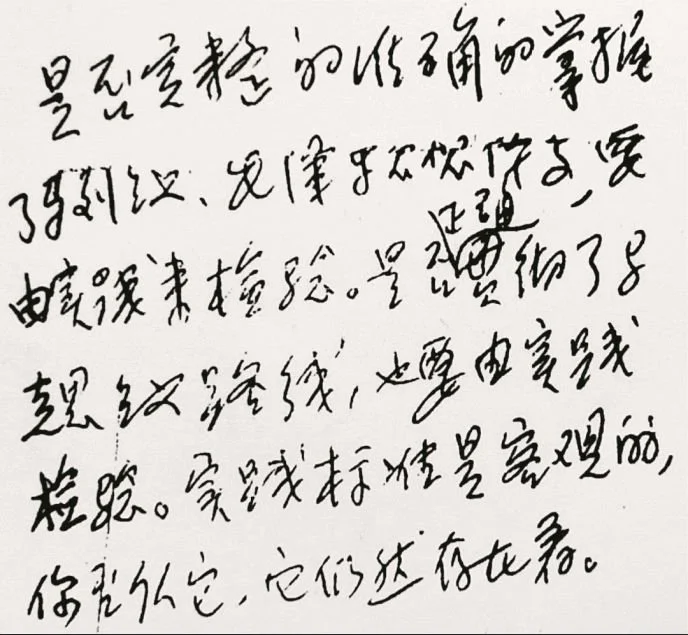 是否完整的准确的掌握
了马列主义、毛泽东思想体系，要
由实践来检验。是否正确贯彻了马
主义路线，也要由实践
检验。实践标准是客观的，
你否认它，它仍然存在着。